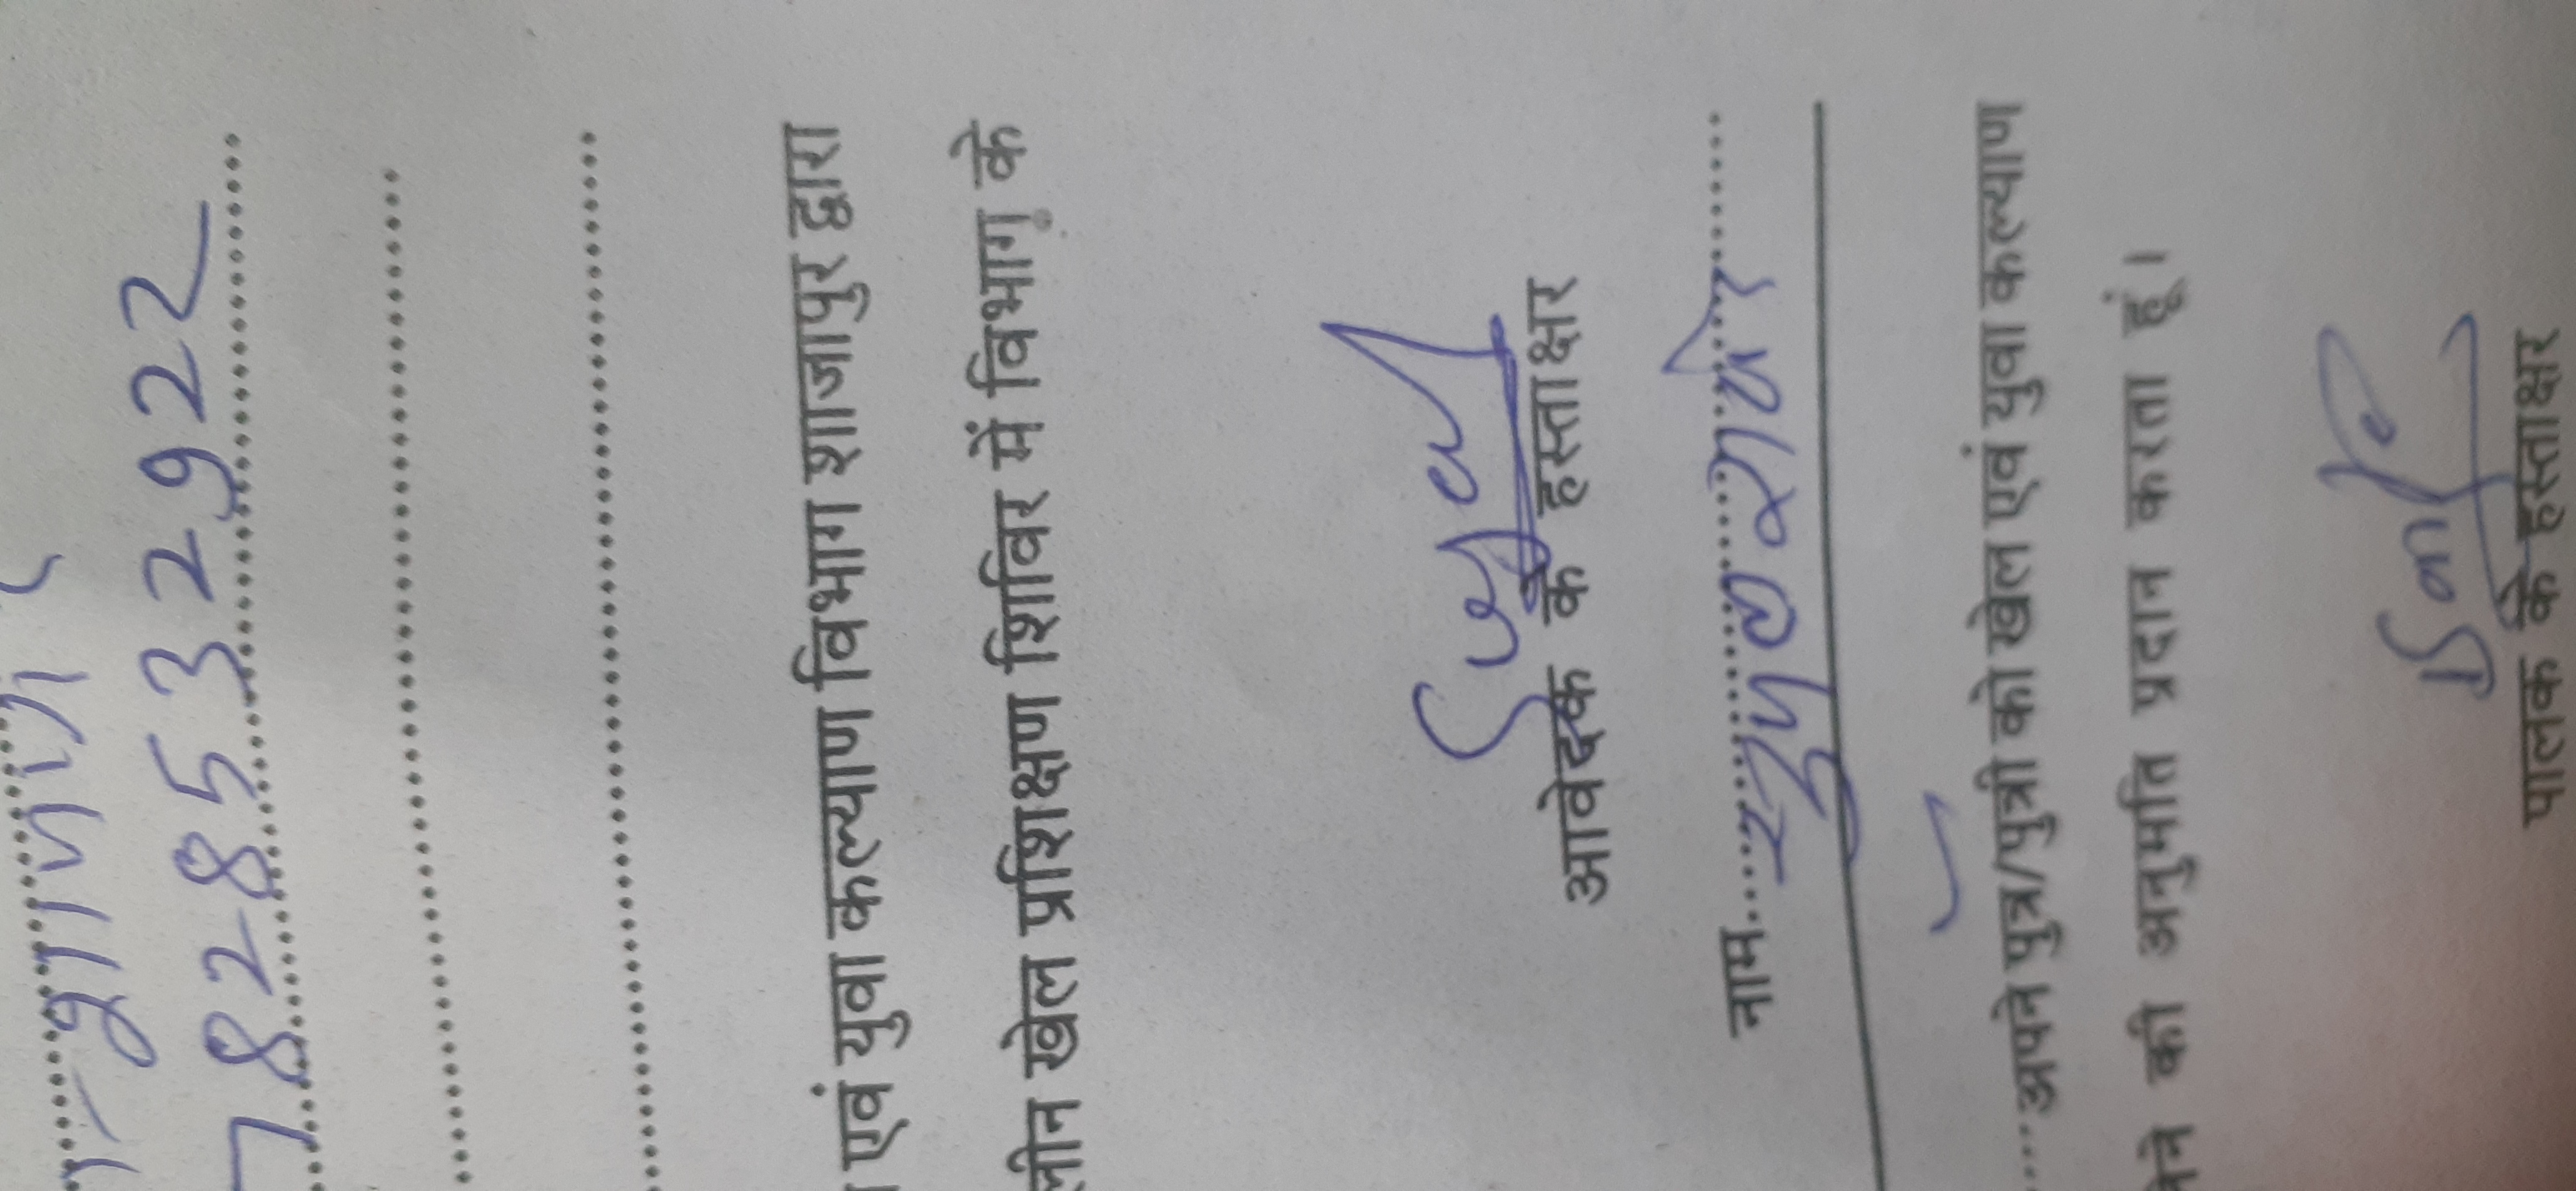 शाजापुर
7828532922
एवं युवा कल्याण विभाग शाजापुर द्वारा
लीन खेल प्रशिक्षण शिविर में विभाग के
आवेदक के हस्ताक्षर
नाम
अपने पुत्र/पुत्री को खेल एवं युवा कल्याण
की अनुमति प्रदान करता हूं।
पालक के हस्ताक्षर